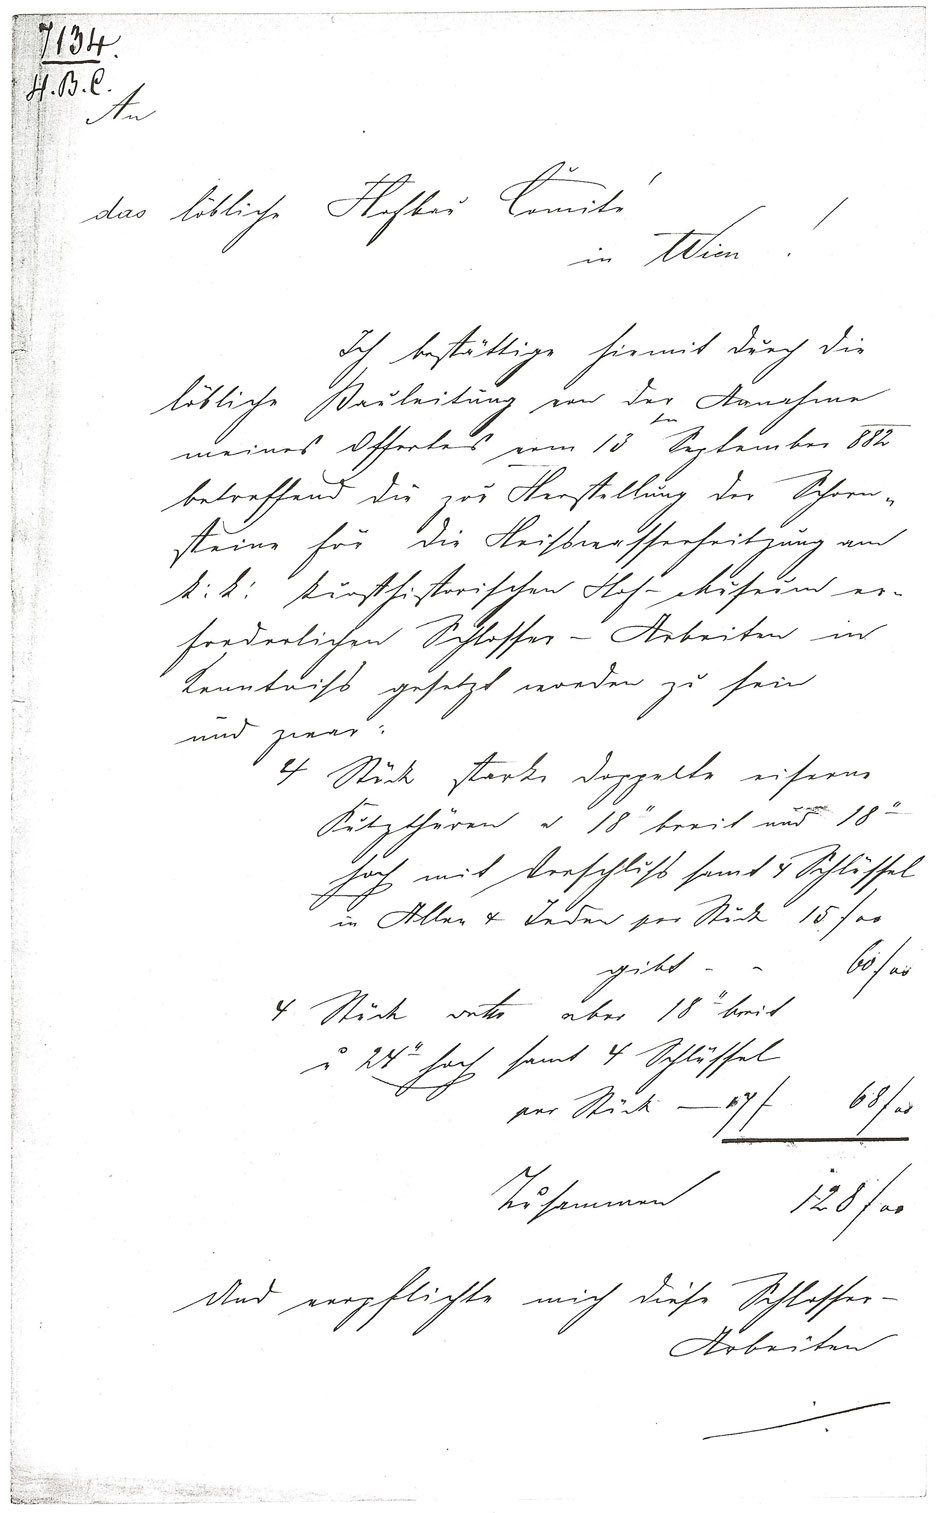 7134.
H.B.C.
An
das löbliche Hofbau Comité
in Wien !
Ich bestättige hiemit durch die
löbliche Bauleitung von der Annahme
meines Offertes vom 13ten September 882
betreffend die zur Herstellung der Schorn„
steine für die Heißwasserheitzung am
k: k: kunsthistorischen Hof-Museum er-
forderlichen Schlosser-Arbeiten in
Kenntniß gesetzt worden zu sein
und zwar:
4 Stück starke doppelte eiserne
Putzthüren a 18" breit und 18"
hoch mit Verschluß samt 4 Schlüssel
in Allen & Jeden per Stück 15 f oo
gibt - - 60 f oo
4 Stück detto aber 18" breit
u 24" hoch samt 4 Schlüssel
per Stück — 17 f 68 f oo
Zusammen 128 f oo
Und verpflichte mich diese Schlosser-
Arbeiten